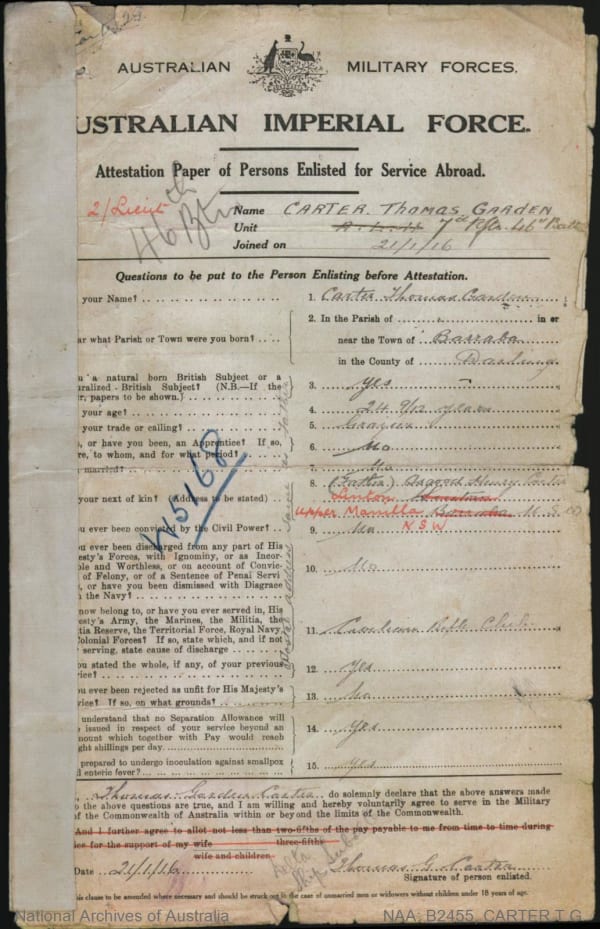 AUSTRALIAN MILITARY FORCES.
USTRALIAN IMPERIAL FORCE.
Attestation Paper of Persons Enlisted for Service Abroad.
2/Lieut
46th Btn
Name CARTER Thomas GARDEN
Unit 7th Rfts. 46th Batt
Joined on 21/1/16
Questions to be put to the Person Enlisting before Attestation.
your Name? 1. Carter Thomas Garden
2. In the Parish of in or
ar what Parish or Town were you born? near the Town of Barraba
in the County of Darling
a natural born British Subject or a
uralized British Subject? (N.B.—If the 3. Yes
r, papers to be shown.)
your age? 4. 24 9/12 years
your trade or calling? 5. Grazier
, or have you been, an Apprentice? If so,
re, to whom, and for what period? 6. No
married? 7. No
8. (Father) Henry Carter
your next of kin? (Address to be stated) Linton
Upper Manilla Barraba N.S.W
NSW
ou ever been convicted by the Civil Power? 9. No
ou ever been discharged from any part of His
jesty's Forces, with Ignominy, or as Incor-
ble and Worthless, or on account of Convic-
of Felony, or of a Sentence of Penal Servi 10. No
, or have you been dismissed with Disgrace
the Navy?
now belong to, or have you ever served in, His
esty's Army, the Marines, the Militia, the
tia Reserve, the Territorial Force, Royal Navy,
Colonial Forces? If so, state which, and if not 11. Rifle Club
serving, state cause of discharge
you stated the whole, if any, of your previous
vice? 12. Yes
ou ever been rejected as unfit for His Majesty's
vice? If so, on what grounds? 13. No
understand that no Separation Allowance will
issued in respect of your service beyond an
mount which together with Pay would reach 14. Yes
ght shillings per day.
prepared to undergo inoculation against smallpox
d enteric fever? 15. Yes
W5168
Thomas Garden Carter do solemnly declare that the above answers made
to the above questions are true, and I am willing and hereby voluntarily agree to serve in the Military
of the Commonwealth of Australia within or beyond the limits of the Commonwealth.
And I further agree to allot not less than two-fifths of the pay payable to me from time to time during
ice for the support of my wife three-fifths
wife and children.
Date 21/1/16 Thomas G. Carter
Signature of person enlisted.
his clause to be amended where necessary and should be struck out in the case of unmarried men or widowers without children under 18 years of age.
National Archives of Australia NAA: B2455, CARTER T G